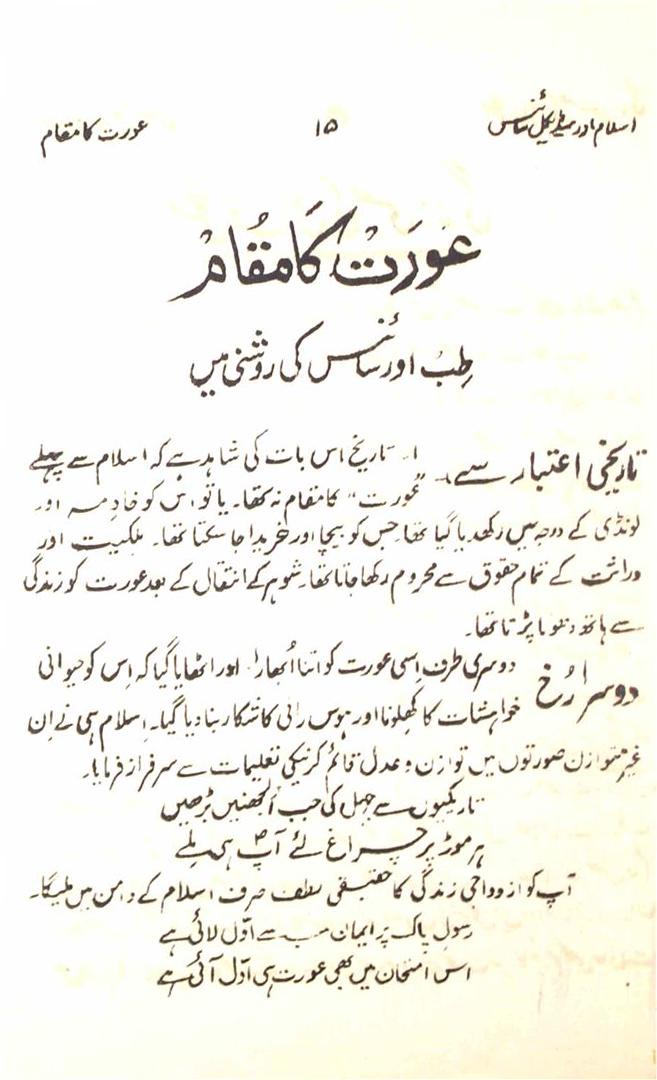 اسلام اور میڈیکل سائنس ۱۵ عورت کا مقام
عَورَتْ کَا مقُامْ
طِبُ اور سائنس کی روشنی میں
تاریخی اعتبار سے۔ تاریخ اس بات کی شاہد ہے کہ اسلام سے پہلے
”عورت“ کا مقام نہ تھا۔ یا تو اس کو خادِمہ اور
لونڈی کے درجہ میں رکھدیا گیا تھا۔ جس کو بیچا اور خریدا جا سکتا تھا۔ ملکیت اور
وراثت کے تمام حقوق سے محروم رکھا جاتا تھا۔ شوہر کے انتقال کے بعد عورت کو زندگی
سے ہاتھ دھونا پڑتا تھا۔
دوسرا رُخ دوسری طرف اِسی عورت کو اتنا اُبھارا اور اٹھایا گیا کہ اِس کو حیوانی
خواہشات کا کھِلونا اور ہوس رانی کا شکار بنا دیا گیا۔ اِسلام ہی نے اِن
غیر متوازن صورتوں میں توازن و عدل قائم کرنیکی تعلیمات سے سرفراز فرمایا۔
تاریکیوں سے جہل کی جب اُلجھنیں بڑھیں
ہر موڑ پر چراغ لئے آپؐ ہی ملے
آپ کو ازدواجی زندگی کا حقیقی لطف صرف اسلام کے دامن میں ملیگا۔
رسولِ پاک پر ایمان سب سے اوّل لائی ہے
اس امتحان میں بھی عورت ہی اوّل آئی ہے